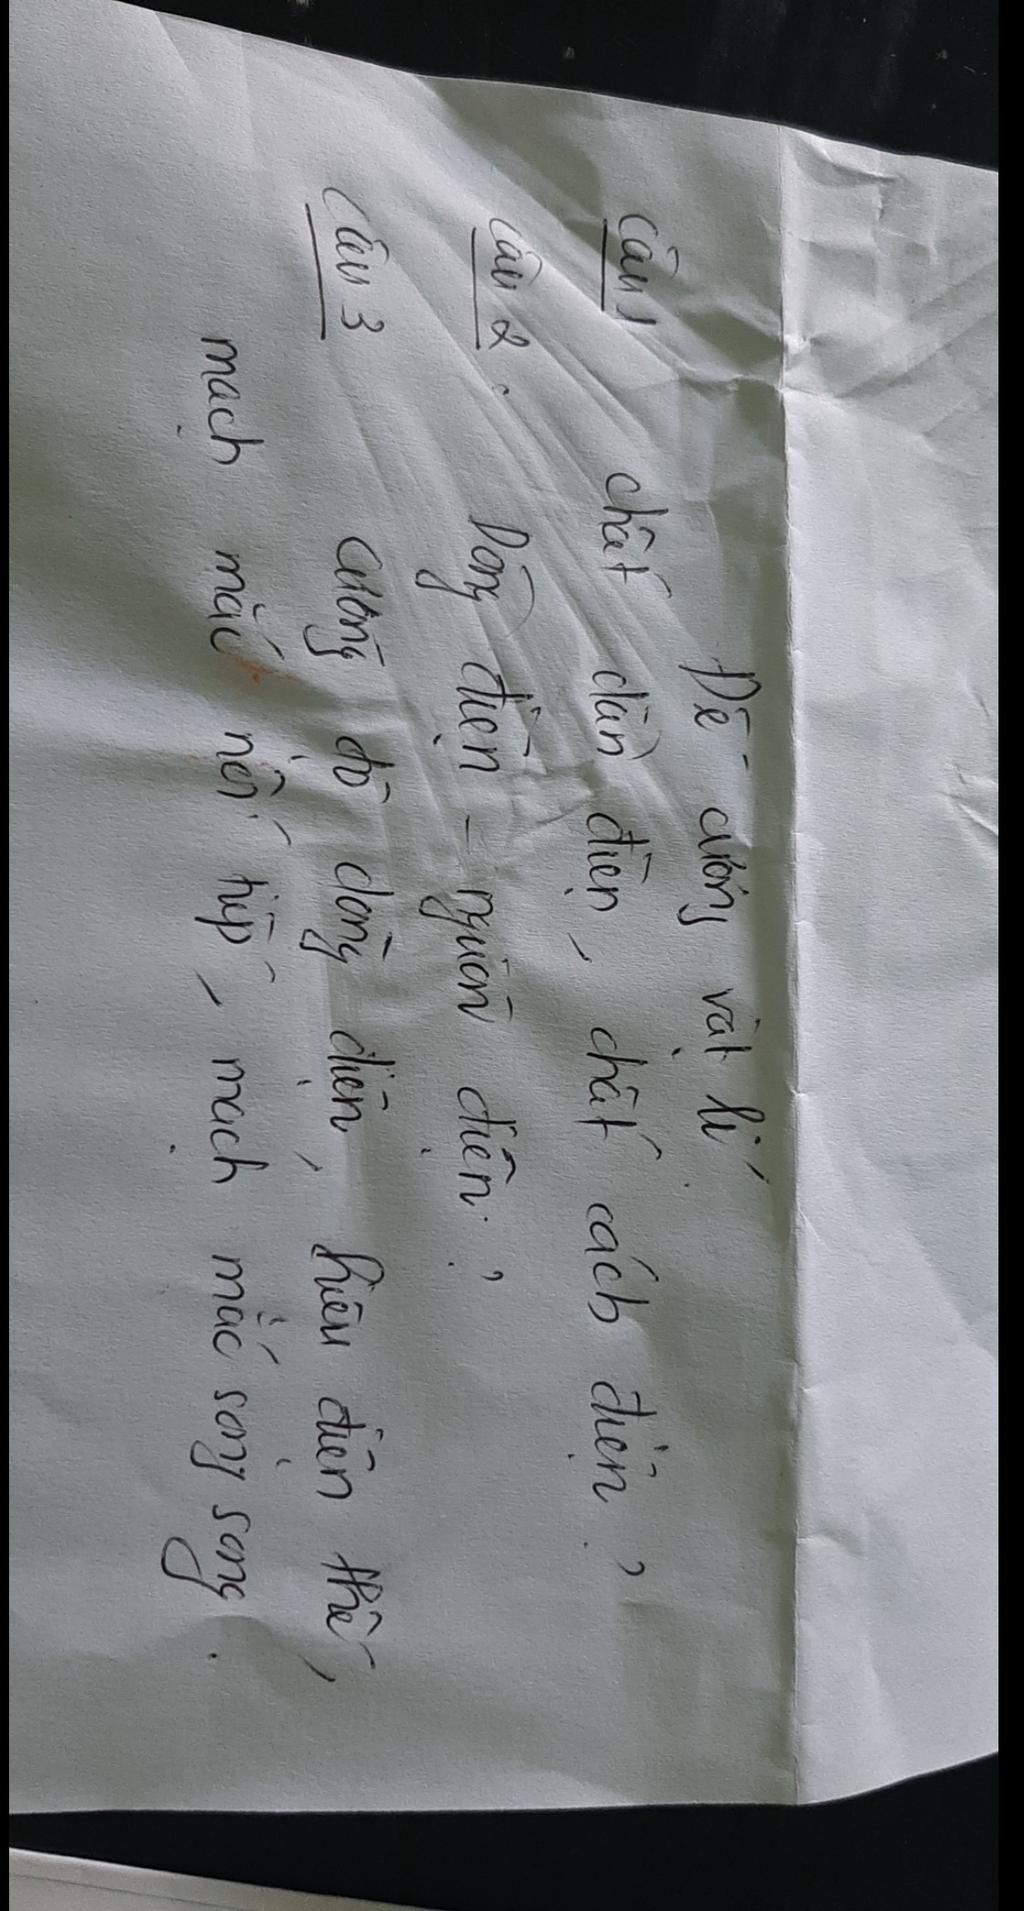 Đề cương vật lí
Câu 1 chất dẫn điện, chất cách điện?
Câu 2. Dòng điện - nguồn điện?
Câu 3 cường độ dòng điện, hiệu điện thế,
mạch mắc nối tiếp, mạch mắc song song.